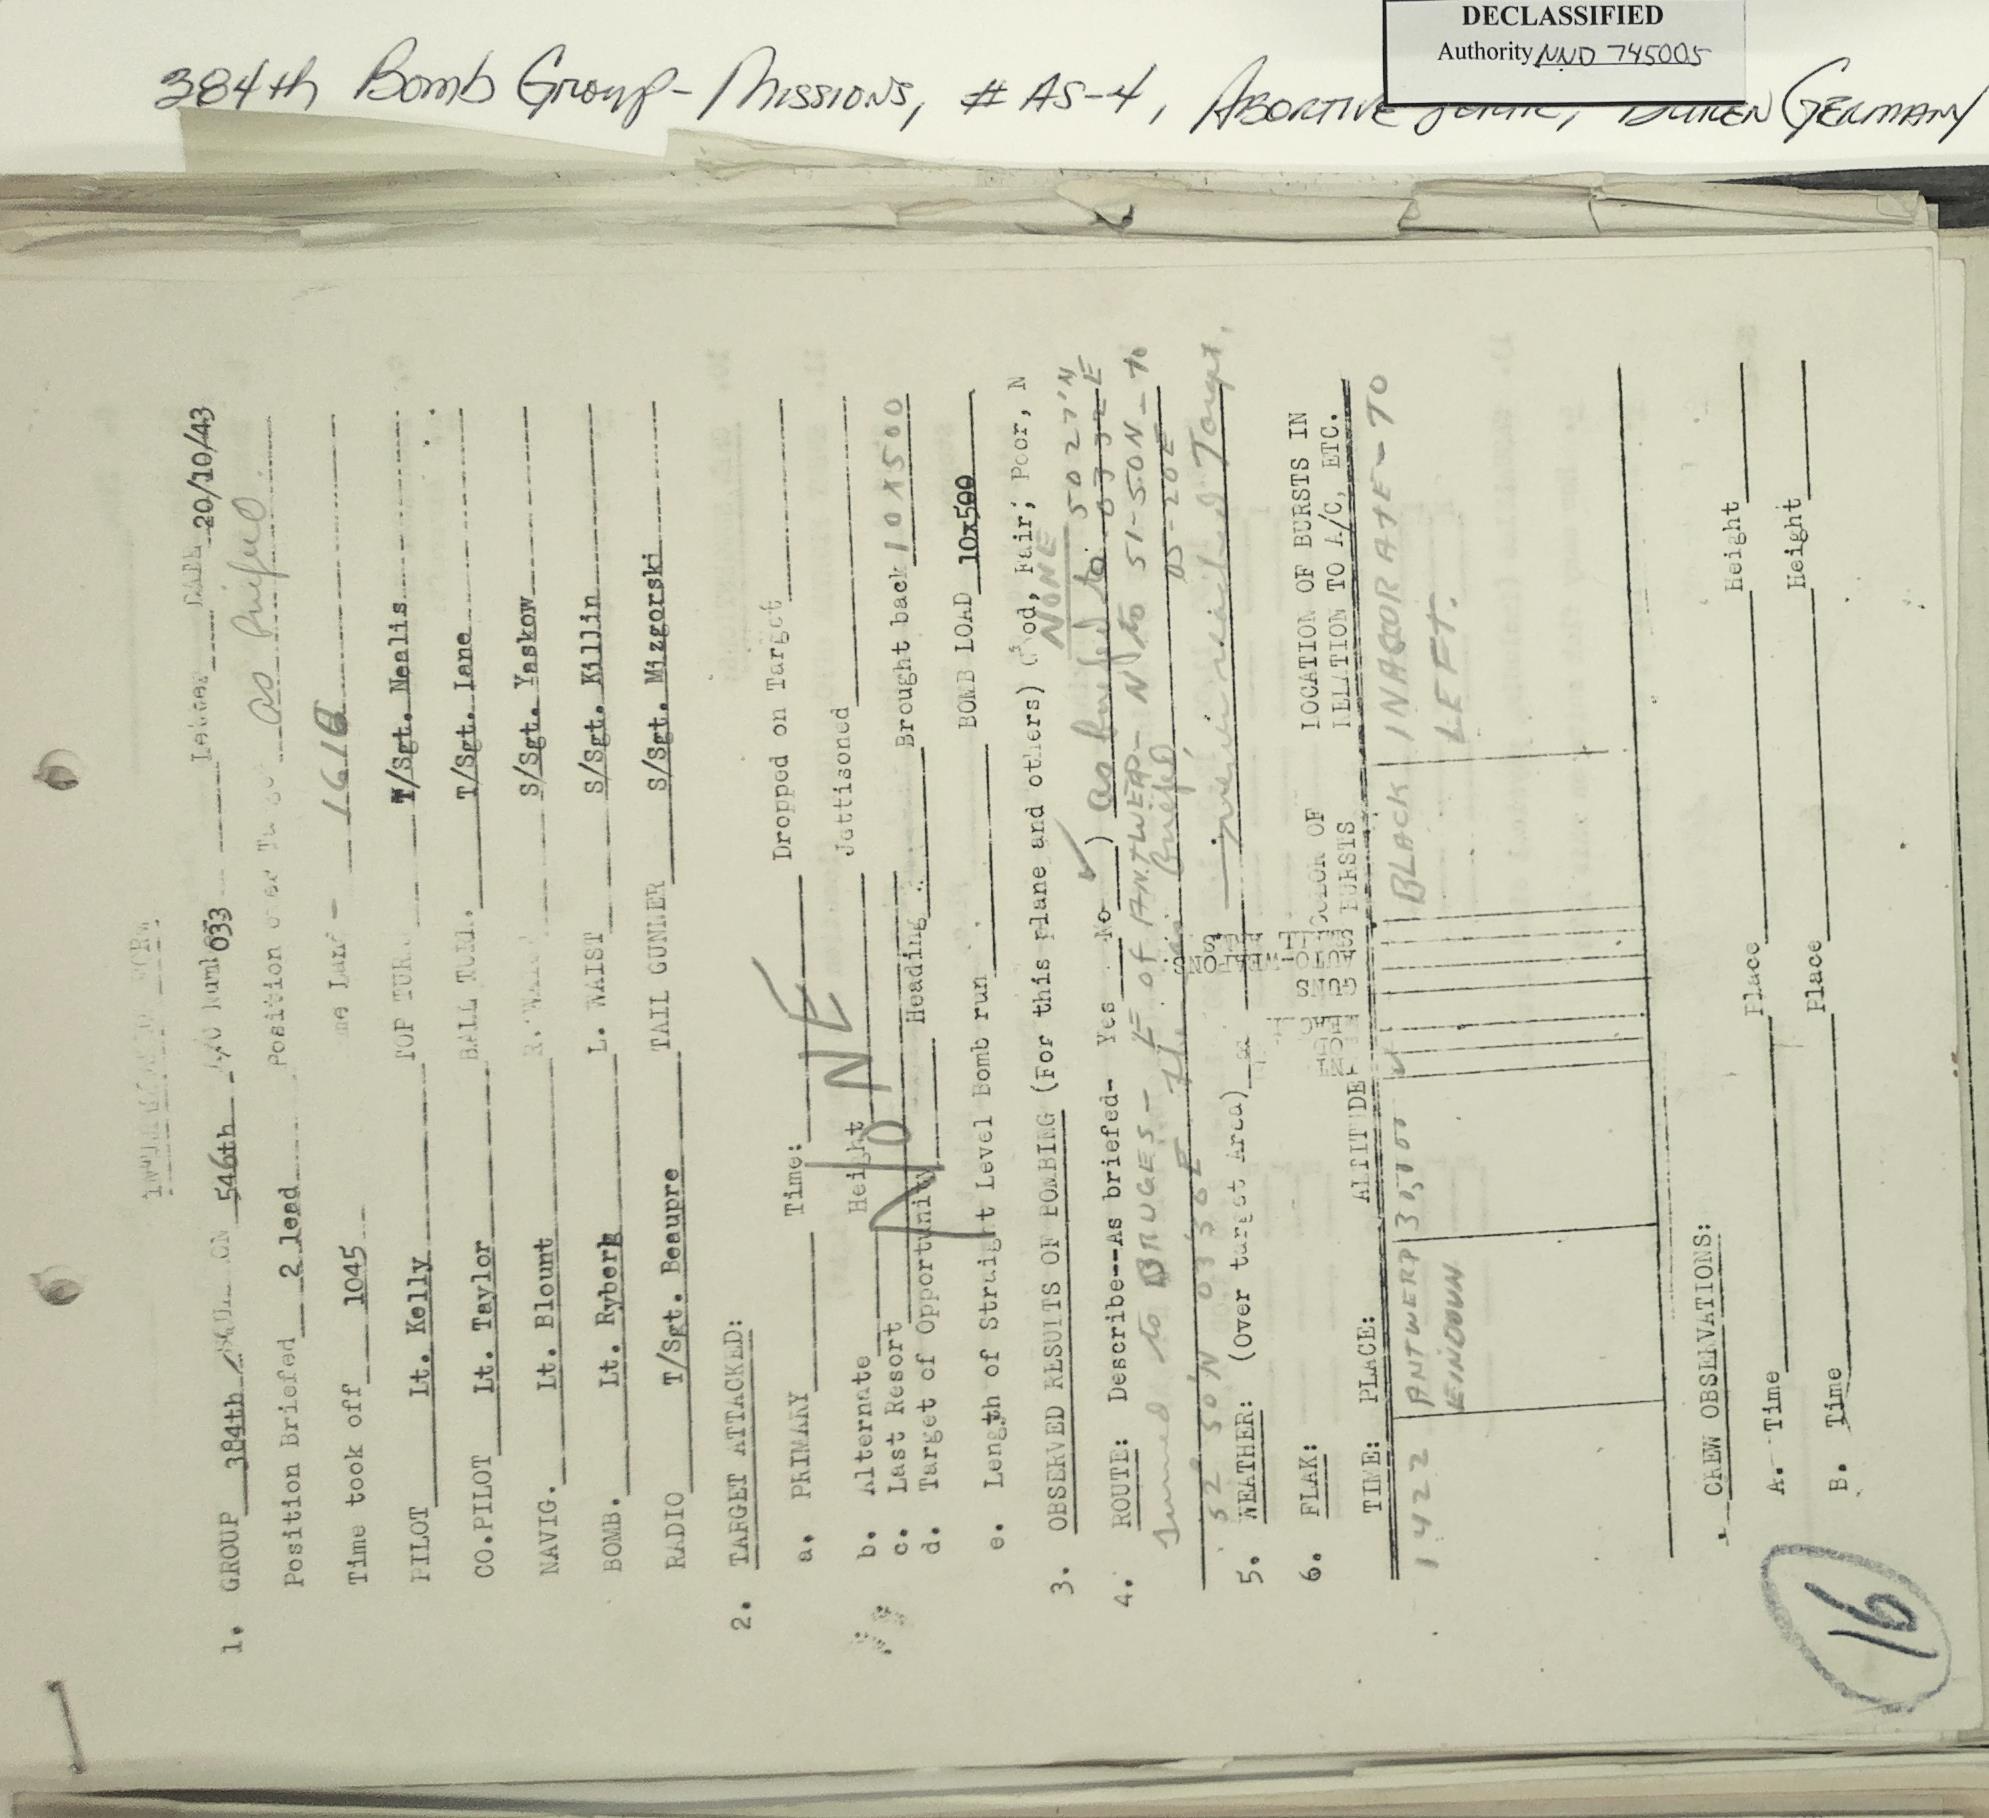 DECLASSIFIED
Authority NND 745005
384th Bomb Group - Missions, # AS-4, Abortive Germany
INTERROGATION FORM
1. GROUP 384th SQUADRON 546th A/C Number 033 Letter DATE 20/10/43
Position Briefed 2 lead Position over as briefed
Time took off 1045 1618
PILOT Lt. Kelly TOP TUR. T/Sgt. Nealis
CO.PILOT Lt. Taylor BALL TUR. T/Sgt. Lane
NAVIG. Lt. Blount R. WAIST S/Sgt. Yaskow
BOMB. Lt. Ryberk L. WAIST S/Sgt. Killin
RADIO T/Sgt. Beaupre TAIL GUNNER S/Sgt. Mizgorski
2. TARGET ATTACKED:
a. PRIMARY Time: Dropped on Target
b. Alternate Height Jettisoned
c. Last Resort Brought back 10x500
d. Target of Opportunity Heading
NONE
e. Length of Straight Level Bomb run BOMB LOAD 10x500
3. OBSERVED RESULTS OF BOMBING (For this plane and others) (Good, Fair; Poor, N
NONE
4. ROUTE: Describe--As briefed- Yes No ✓) as briefed to 5027'N
turned to BRUGES - E OF ANTWERP - N to 51-50N - to
05-20E
52 50'N 0330E
5. WEATHER: (Over target Area)
6. FLAK:
TIME: PLACE: ALTITUDE COLOR OF BURSTS LOCATION OF BURSTS IN RELATION TO A/C, ETC.
1422 ANTWERP BLACK INACCURATE - TO LEFT.
CREW OBSERVATIONS:
A. Time Place Height
B. Time Place Height
16